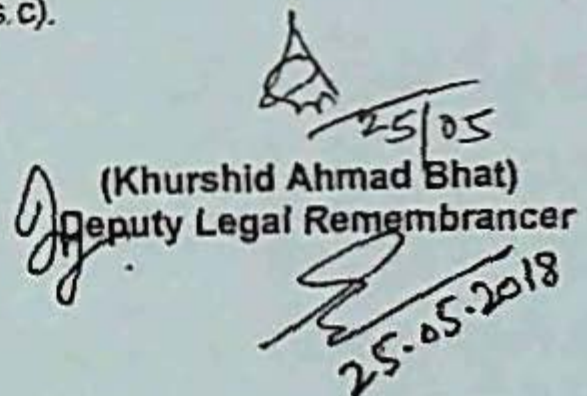 s.c).
25/05
(Khurshid Ahmad Bhat)
Deputy Legal Remembrancer
25.05.2018